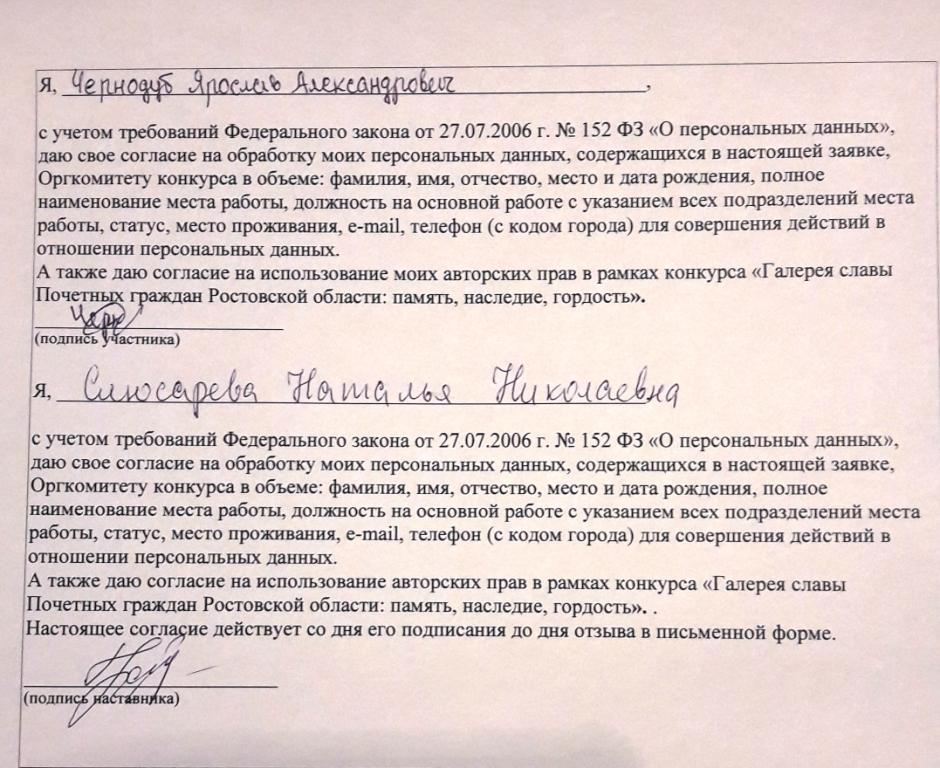 Я, Чернодуб Ярослав Александрович,
с учетом требований Федерального закона от 27.07.2006 г. № 152 ФЗ «О персональных данных»,
даю свое согласие на обработку моих персональных данных, содержащихся в настоящей заявке,
Оргкомитету конкурса в объеме: фамилия, имя, отчество, место и дата рождения, полное
наименование места работы, должность на основной работе с указанием всех подразделений места
работы, статус, место проживания, e-mail, телефон (с кодом города) для совершения действий в
отношении персональных данных.
А также даю согласие на использование моих авторских прав в рамках конкурса «Галерея славы
Почетных граждан Ростовской области: память, наследие, гордость».
(подпись участника)
Я, Слюсарева Наталья Николаевна
с учетом требований Федерального закона от 27.07.2006 г. № 152 ФЗ «О персональных данных»,
даю свое согласие на обработку моих персональных данных, содержащихся в настоящей заявке,
Оргкомитету конкурса в объеме: фамилия, имя, отчество, место и дата рождения, полное
наименование места работы, должность на основной работе с указанием всех подразделений места
работы, статус, место проживания, e-mail, телефон (с кодом города) для совершения действий в
отношении персональных данных.
А также даю согласие на использование авторских прав в рамках конкурса «Галерея славы
Почетных граждан Ростовской области: память, наследие, гордость». .
Настоящее согласие действует со дня его подписания до дня отзыва в письменной форме.
(подпись наставника)